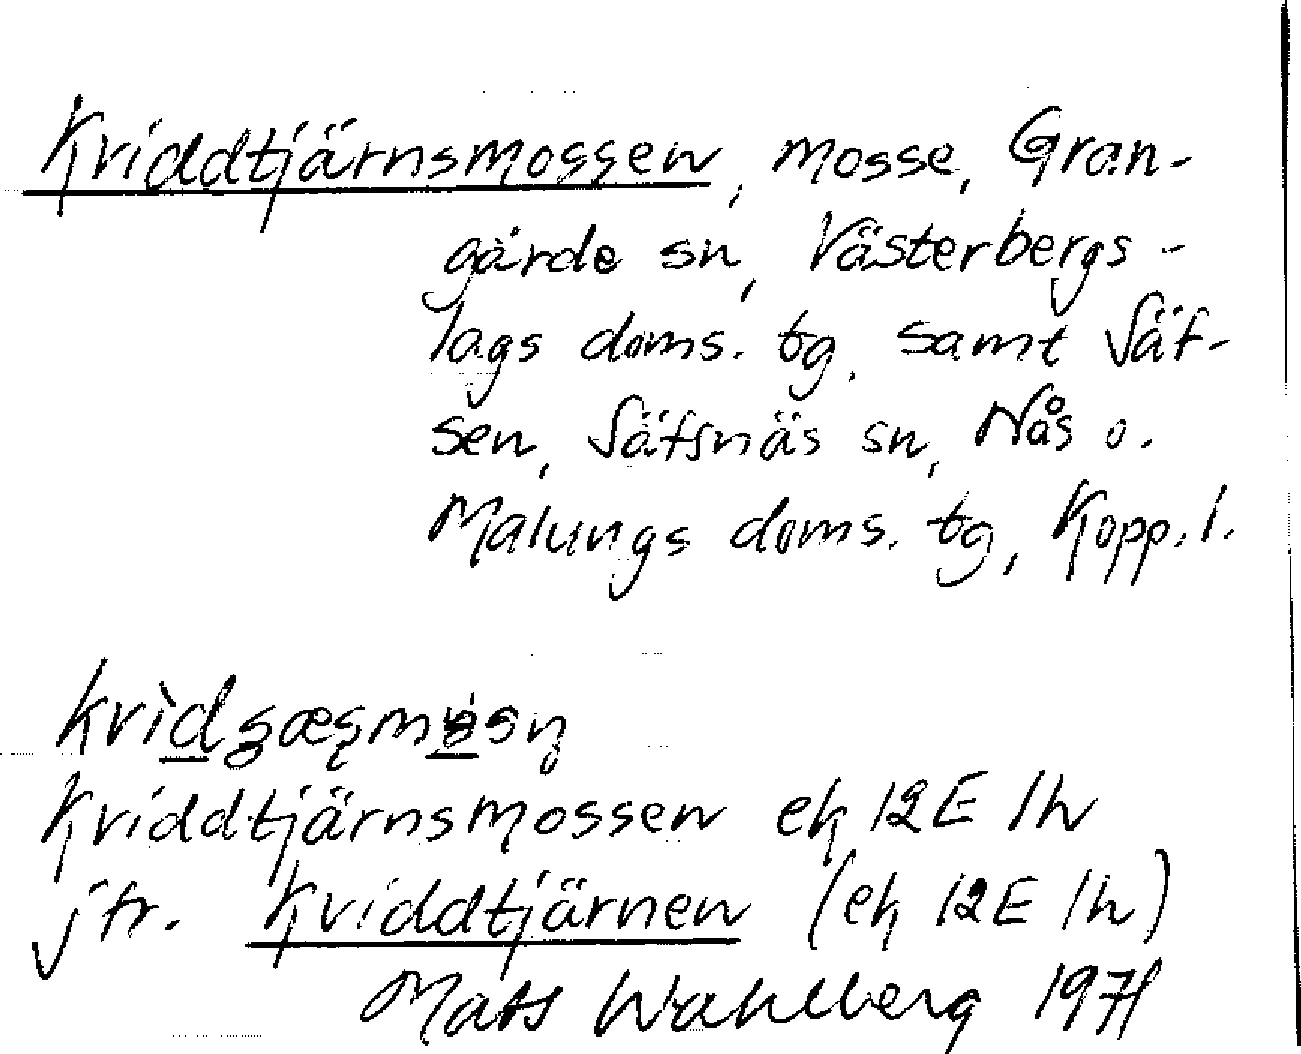 Kriddtjärnsmossen, mosse, Gran-
gärde sn, Västerbergs-
lags doms. tg. samt Säf-
sen, Säfsnäs sn, Nås o.
Malungs doms. tg, Kopp. l.
Kriddtjärnsmossen ek 12E 1h
jfr. Kriddtjärnen (ek 12E 1h)
Mats Wahlberg 1971